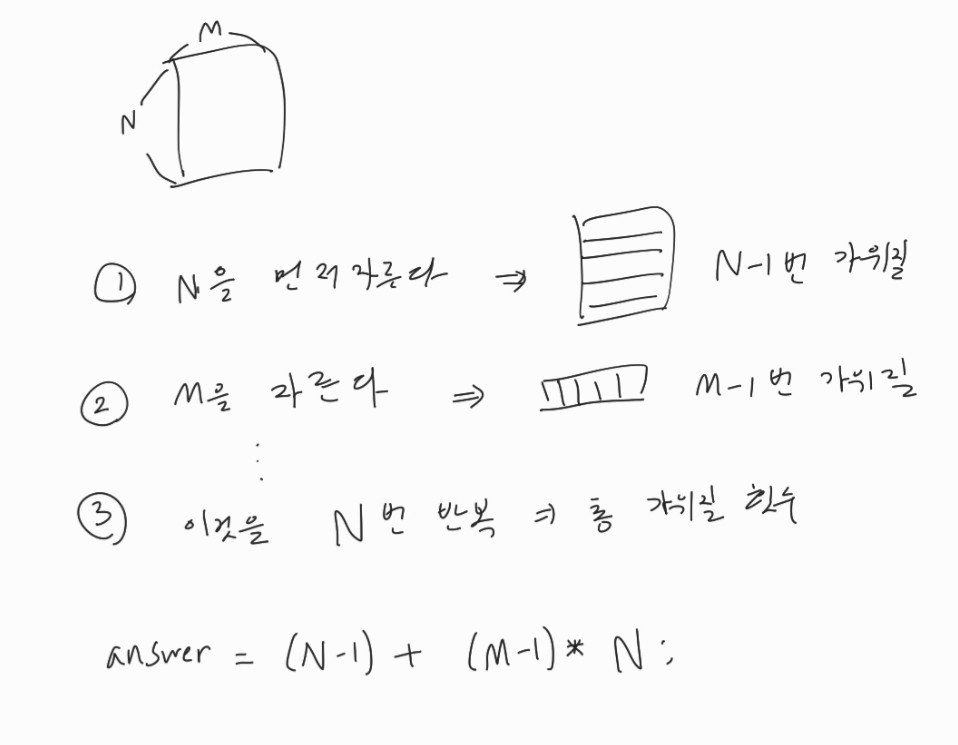 M
N
① N을 먼저 자른다 ⇒ N-1번 가위질
② M을 자른다 ⇒ M-1번 가위질
⋮
③ 이것을 N번 반복 ⇒ 총 가위질 횟수
answer = (N-1) + (M-1)* N;